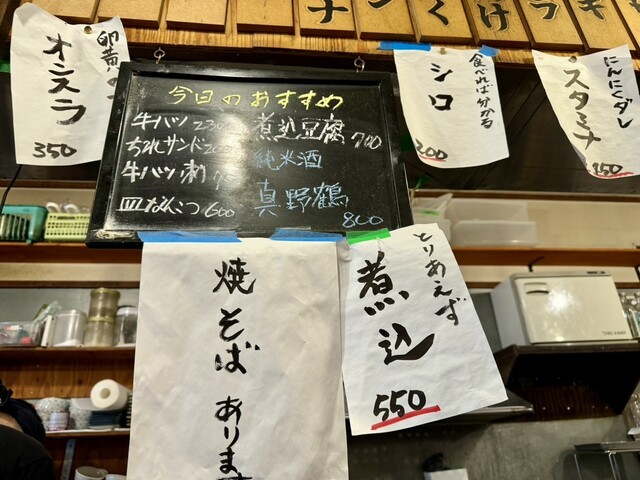 卵黄
オンスラ
350
今日のおすすめ
牛ハツ 230
ちれサンド 20
牛ハツ刺
皿なんこつ 600
煮込豆腐
700
純米酒
真野鶴
800
食べれば分かる
シロ
200
にんにくダレ
スタミナ
150
とりあえず
煮込
550
焼そば あります